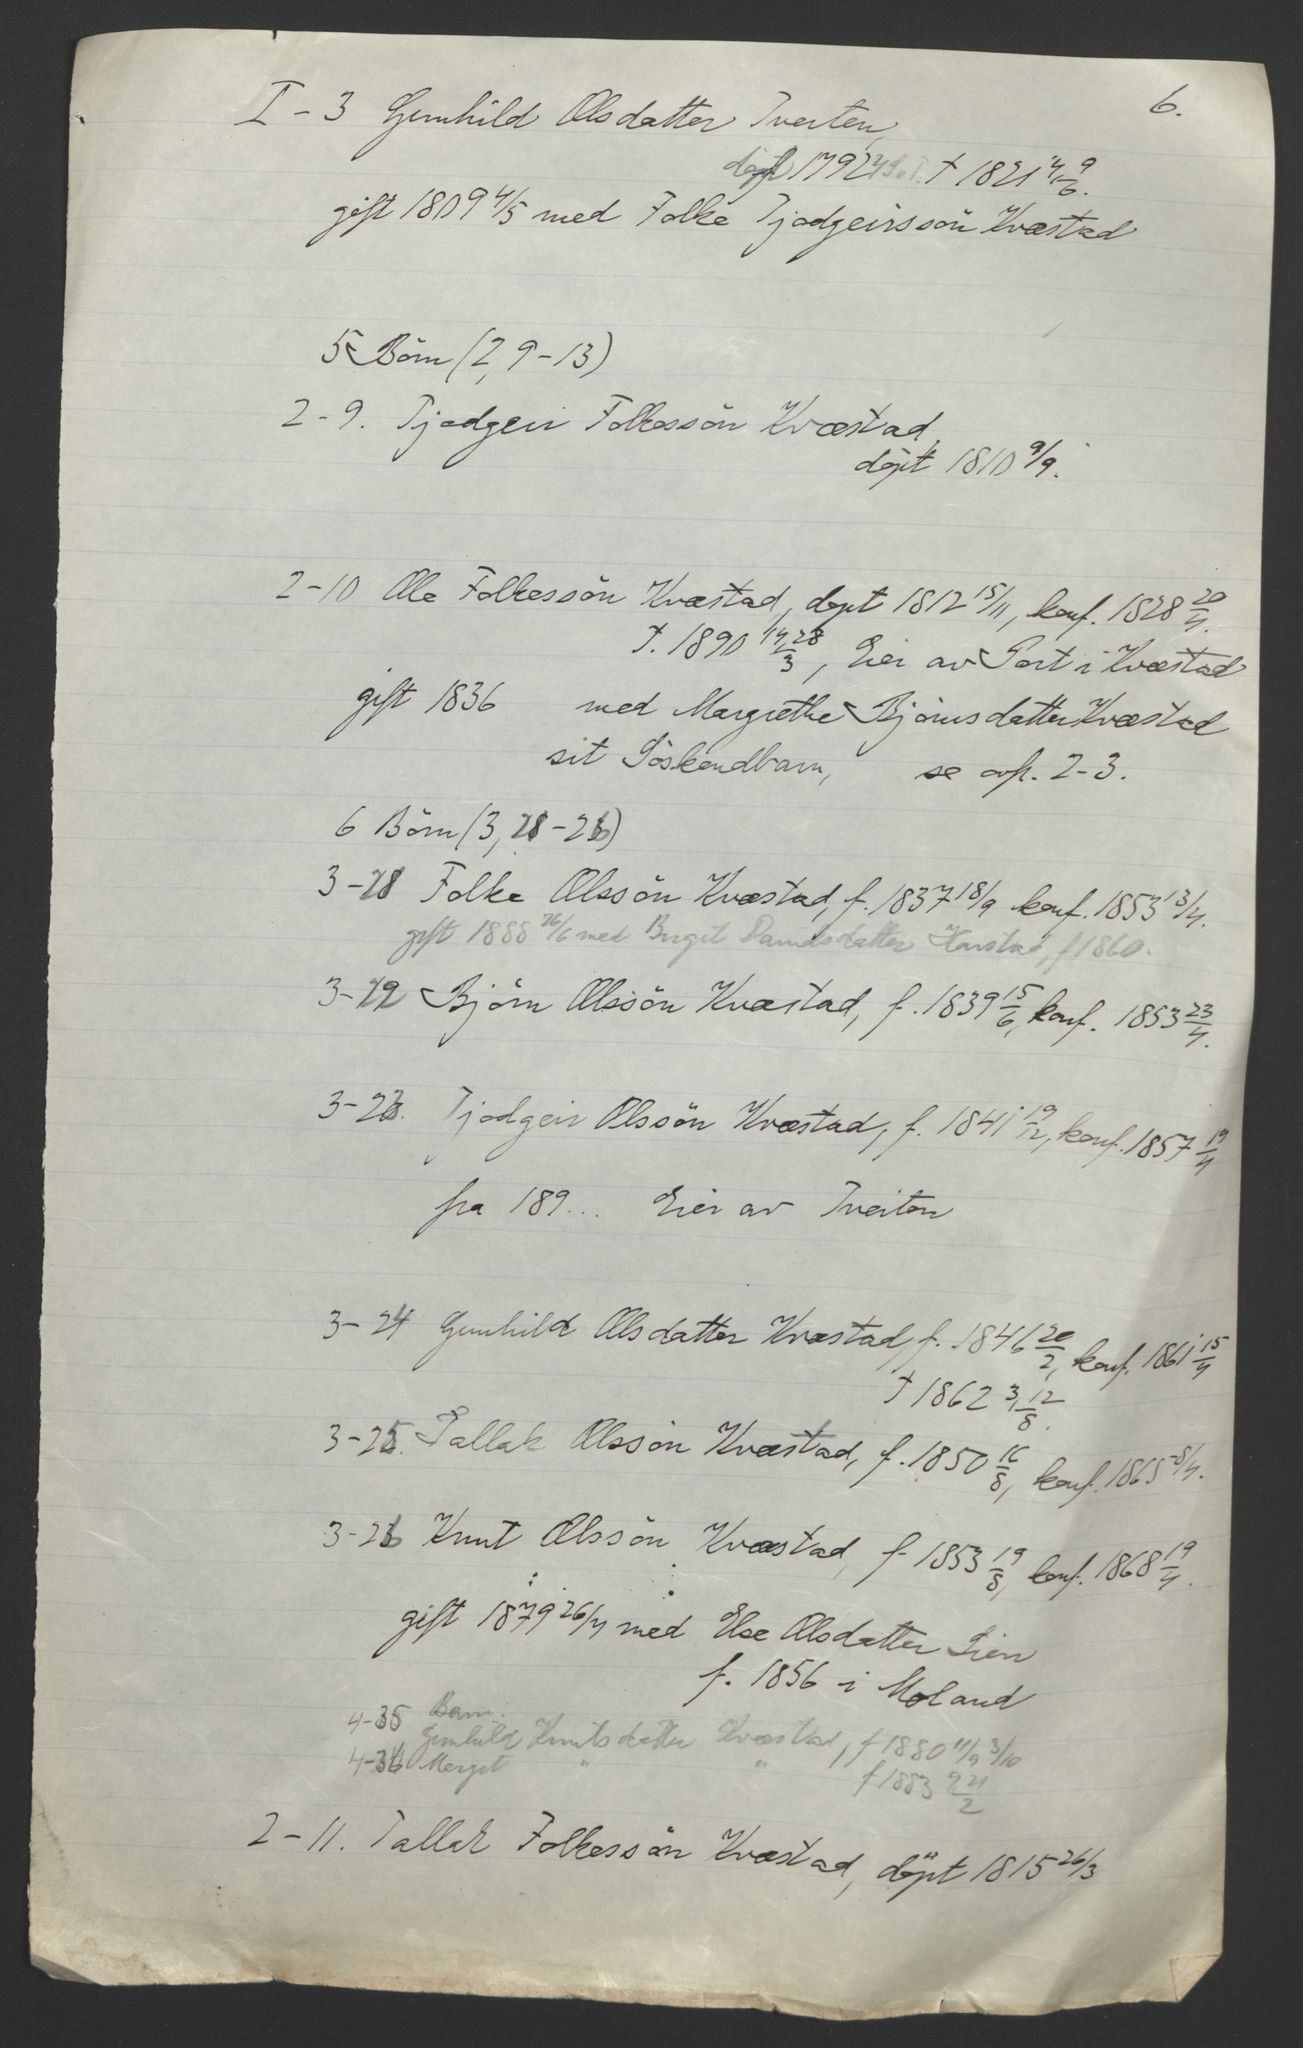 6.
I - 3 Gunhild Olsdatter Tveiten,
døpt 1792 † 1821 4/6 9/6.
gift 1809 4/5 med Folke Tjodgeirssön Kvæstad
5 Börn (2, 9-13)
2-9. Tjodgeir Folkessön Kvæstad,
döpt 1810 9/9.
2-10 Ole Folkessön Kvæstad, døpt 1812 15/11, konf. 1828 20/4.
†. 1890 14/3 28/3, Eier av Part i Kvæstad
gift 1836 med Margrethe Björnsdatter Kvæstad
sit Söskendbarn, se 2-3.
6 Börn (3, 21-26)
3-21 Folke Olssön Kvæstad, f. 1837 18/9 konf. 1853 13/4.
gift 1888 26/6 med Birgit Harstad, f 1860.
3-22 Björn Olssön Kvæstad, f. 1839 15/6, konf. 1853 23/4.
3-23. Tjodgeir Olssön Kvæstad, f. 1841 19/12, konf. 1857 19/4
fra 189... Eier av Tveiten
3-24 Gunhild Olsdatter Kvæstad, f. 1846 20/2, konf. 1861 15/4
† 1862 3/8 12/8.
3-25. Tallak Olssön Kvæstad, f. 1850 16/8, konf. 1865 /4.
3-26 Knut Olssön Kvæstad, f. 1853 19/8, konf. 1868 19/4.
gift 1879 26/4 med Else Olsdatter Lien
f. 1856 i Moland
Barn.
4-35 Gunhild Knutsdatter Kvæstad, f 1880 11/9 3/10
4-36 Margit " " f 1883 9/2 21/2
2-11. Tallak Folkessön Kvæstad, döpt 1815 26/3